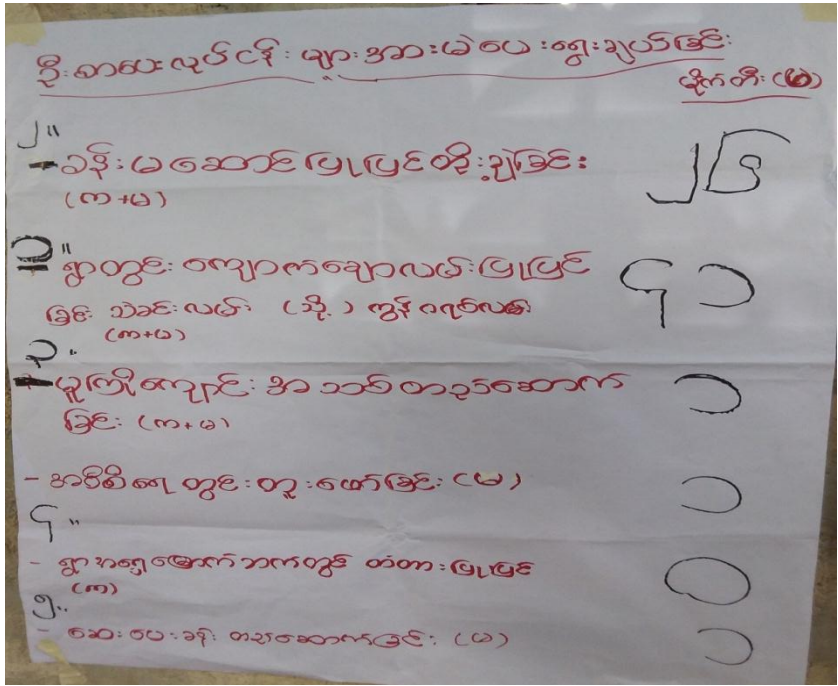 ဦးစားပေးလုပ်ငန်းများအားမဲပေးရွေးချယ်ခြင်း
မိုက်တီး (မ)
၂။
- ခန်းမဆောင်ပြုပြင်တိုးချဲ့ခြင်း
(က+မ)
၂၆
၁။
- ရွာတွင်းကျောက်ချောလမ်းပြုပြင်
ခြင်း သဲခင်းလမ်း (သို့) ကွန်ကရစ်လမ်း
(က+မ)
၄၁
၃။
- မူကြိုကျောင်းအသစ်တည်ဆောက်
ခြင်း (က+မ)
၁
- အဝီစိရေတွင်းတူးဖော်ခြင်း (မ)
၁
၄။
- ရွာအရှေ့မြောက်ဘက်တွင် တံတားပြုပြင်
(က)
၀
၅။
- ဆေးပေးခန်းတည်ဆောက်ခြင်း (မ)
၁